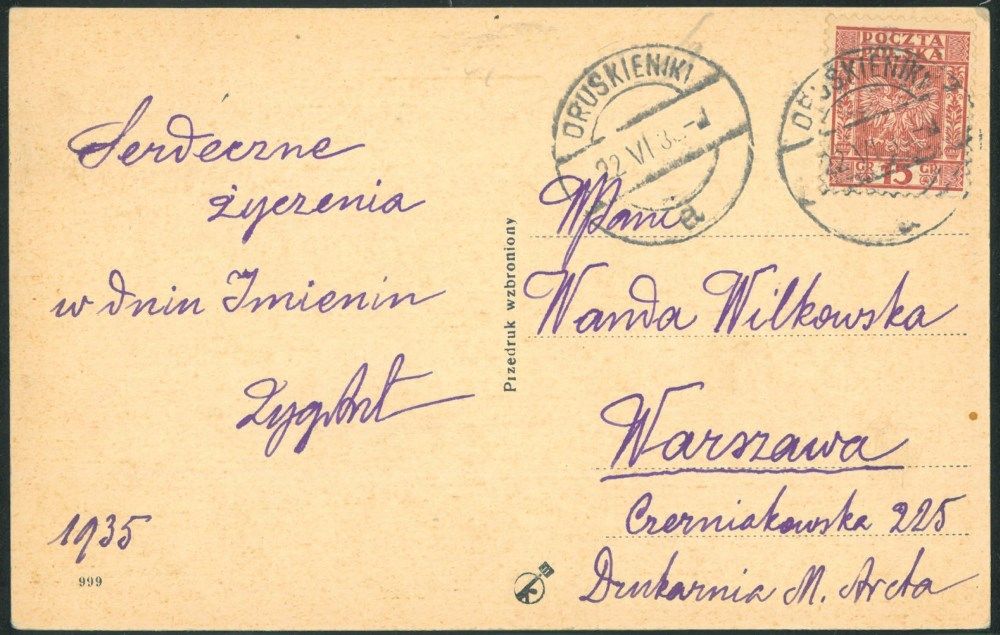 Serdeczne
życzenia
w dniu Imienin
1935
999
Przedruk wzbroniony
DRUSKIENIKI
22 VI 3
a
POCZTA
POLSKA
GR 15 GR
DRUSKIENIKI
a
WPani
Wanda Wilkowska
Warszawa
Czerniakowska 225
Drukarnia M. Arcta